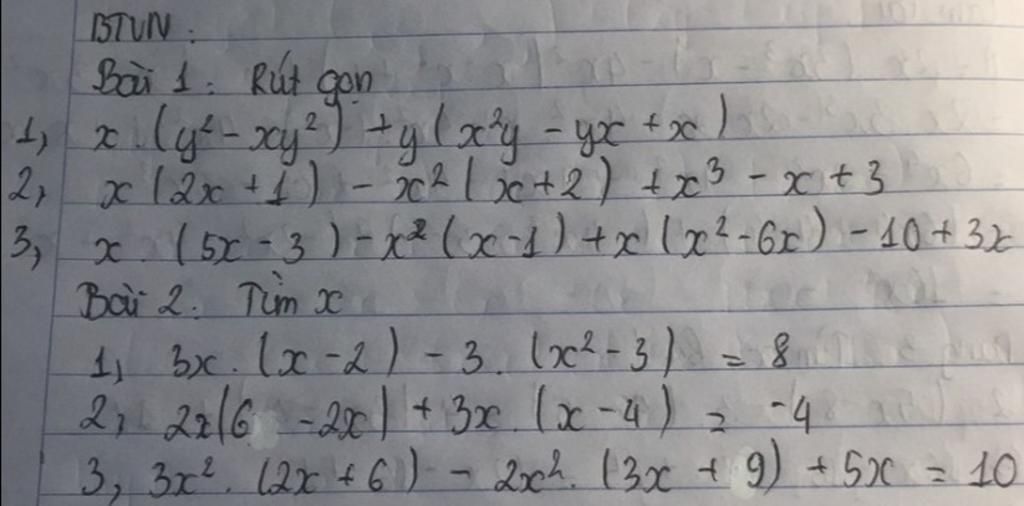 BTVN:
Bài 1: Rút gọn
1, x.(y² - xy²) + y(x²y - yx + x)
2, x(2x + 1) - x²(x+2) + x³ - x + 3
3, x.(5x - 3) - x²(x-1) + x(x² - 6x) - 10 + 3x
Bài 2: Tìm x
1, 3x.(x - 2) - 3.(x² - 3) = 8
2, 2x(6 - 2x) + 3x.(x - 4) = -4
3, 3x².(2x + 6) - 2x².(3x + 9) + 5x = 10